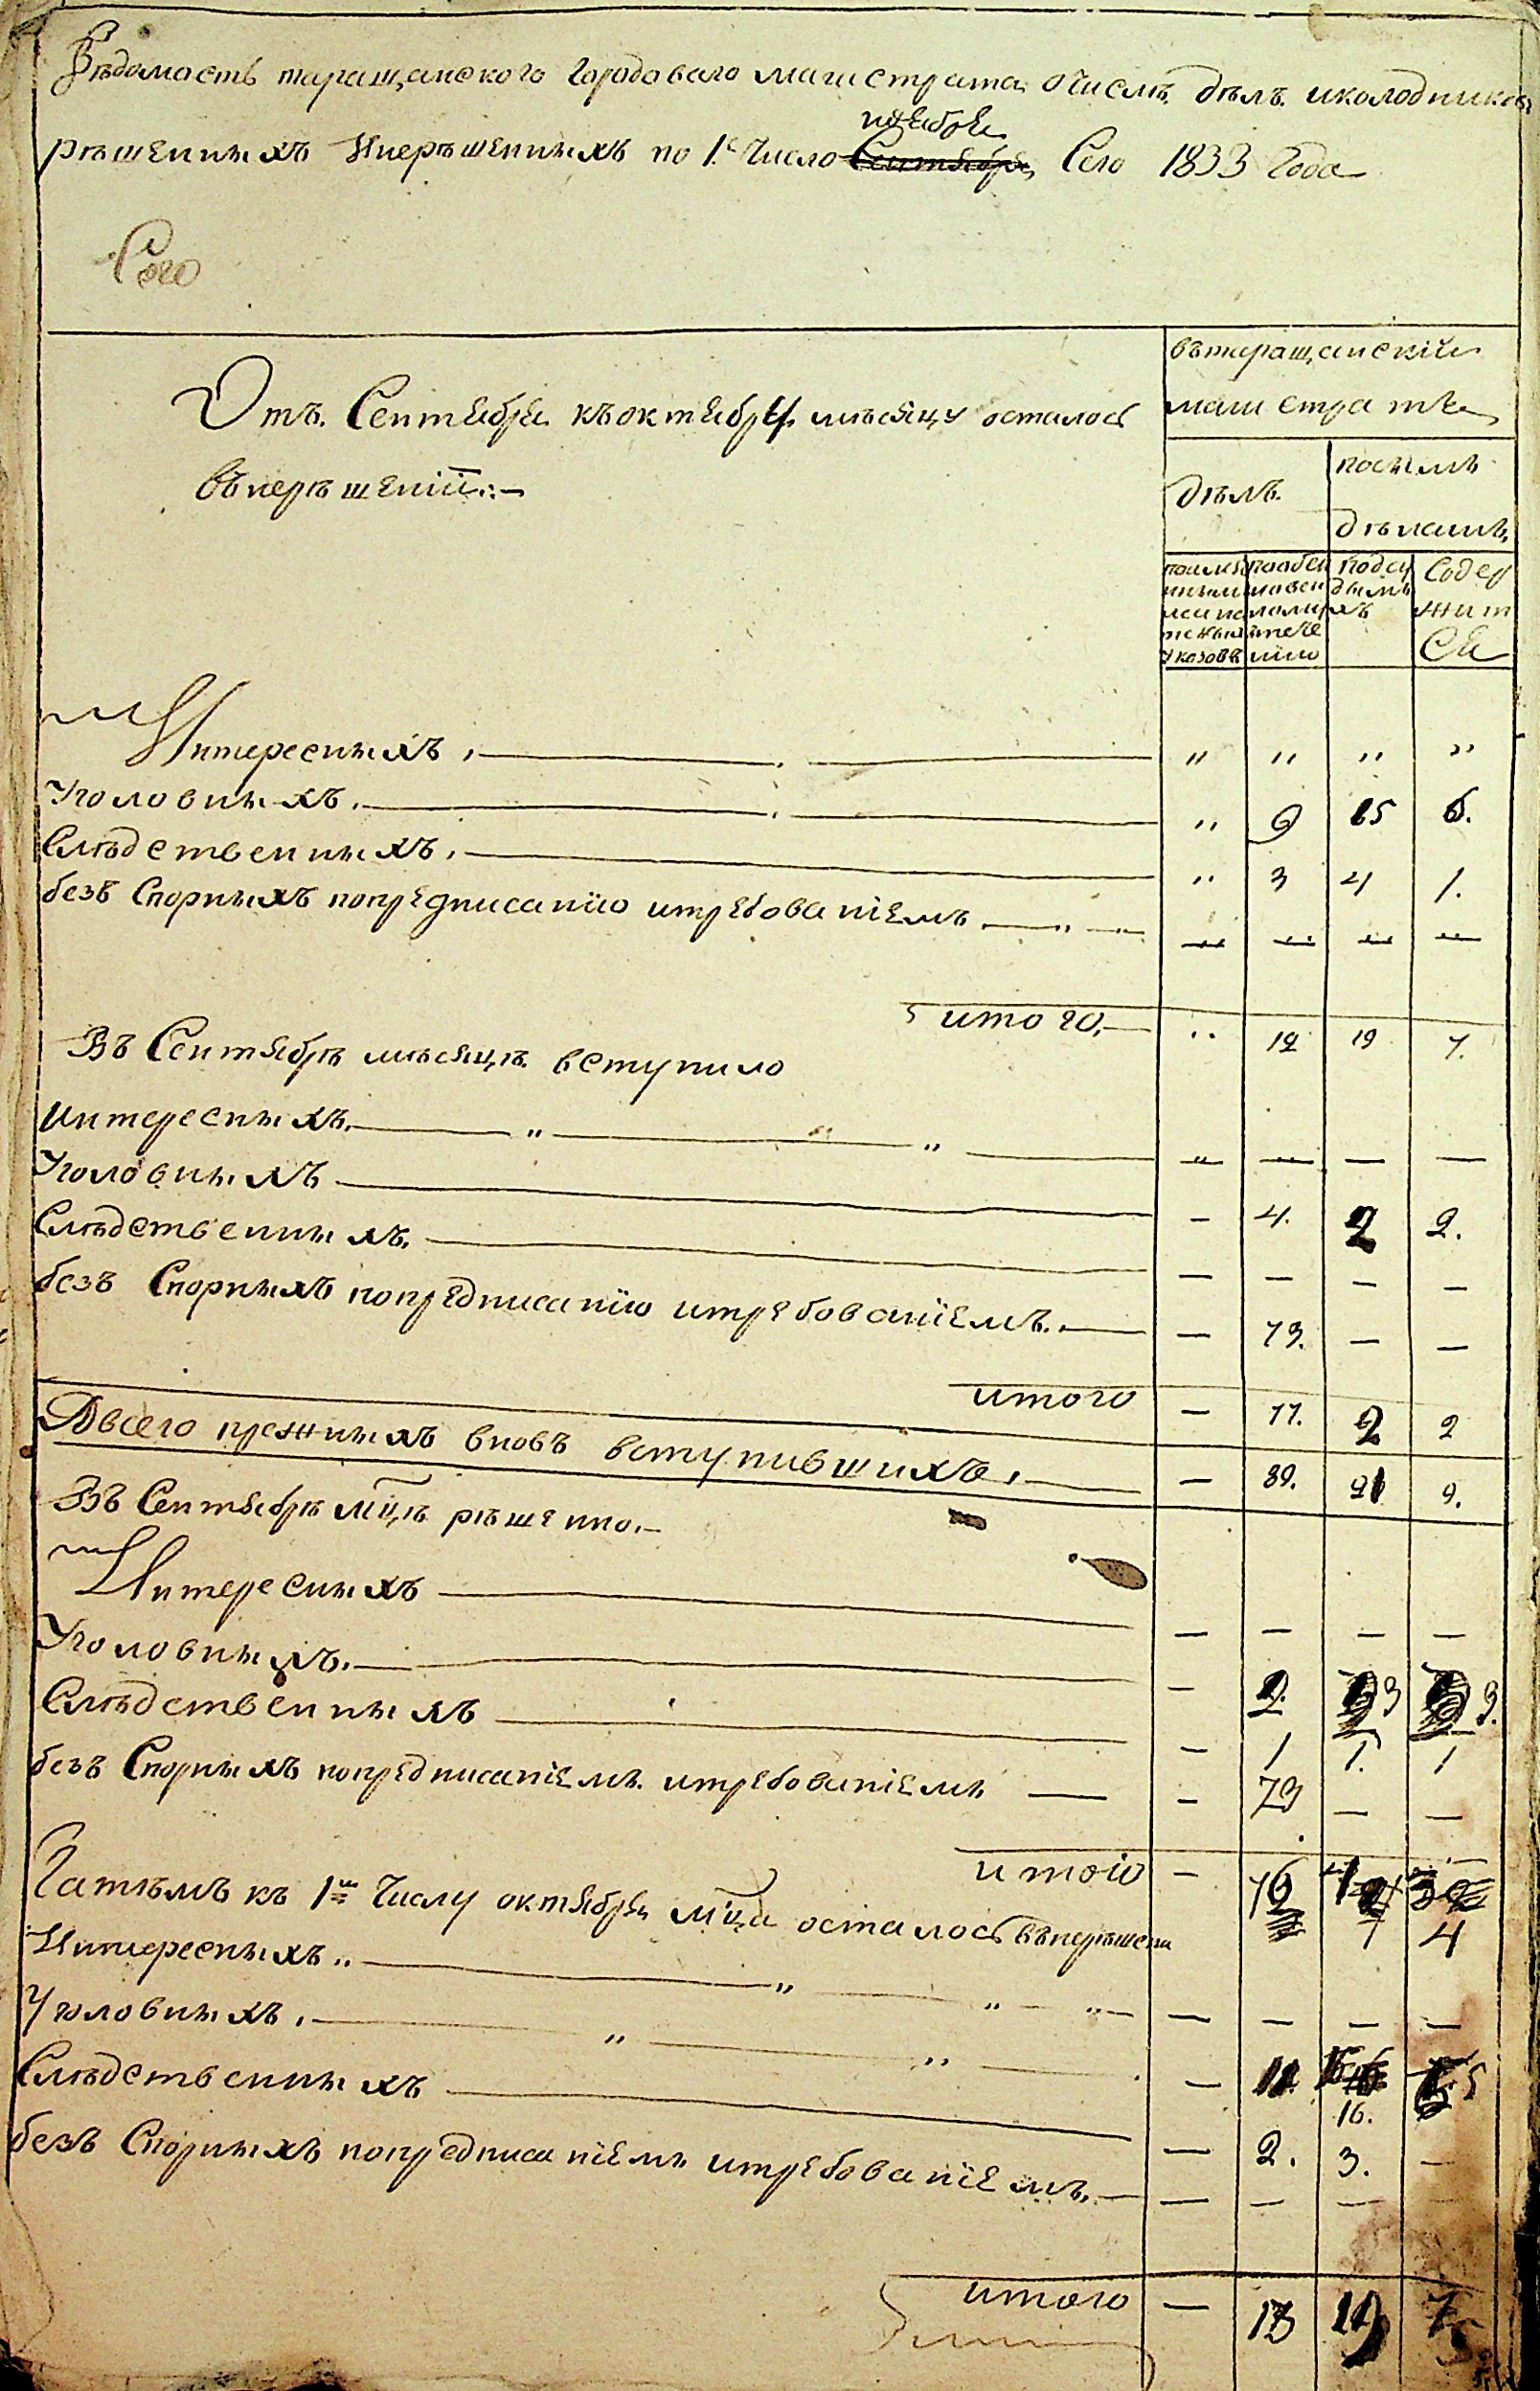 Вѣдомость таращанского городоваго магистрата очислѣ дѣлъ иколодниковъ
ноября
рѣшенныхъ Инерѣшенныхъ по 1е число Сентября Сего 1833 Года
Сего
вътаращанскій
магистратѣ
Отъ Сентября къоктябрю мѣсяцу осталось
вънерѣшеніи
дѣлъ
посимъ
дѣламъ
поимяннымъ
пообыкновен
подсу
димы
хъ
Содер
жит
Ся
указовъ
Интересныхъ " " " "
Уголовныхъ " 9 15 6.
Слѣдственныхъ " 3 4 1.
безъ Спорныхъ попредписанію итребованіемъ " " " "
итого " 12 19 7.
Въ Сентябрѣ мѣсяцѣ вступило
Интересныхъ " " — —
Уголовныхъ — 4. 2 2.
Слѣдственныхъ — — — —
безъ Спорныхъ попредписанію итребованіемъ — 73. — —
итого — 77. 2 2
Авсего прежныхъ вновь вступившихъ — 89. 21 9.
Въ Сентябрѣ мцѣ рѣшенно
Интересныхъ — — — —
Уголовныхъ — 2. 3 3.
Слѣдственныхъ — 1 1. 1
безъ Спорныхъ попредписаніемъ итребованіемъ — 73 — —
итого — 76 4
Затѣмъ къ 1му Числу октября мца осталось вънерѣшени
Интересныхъ — — — —
Уголовныхъ — 11 16. 5
Слѣдственныхъ — 2. 3. —
безъ Спорныхъ попредписаніемъ итребованіемъ — — — —
итого — 13 19 5